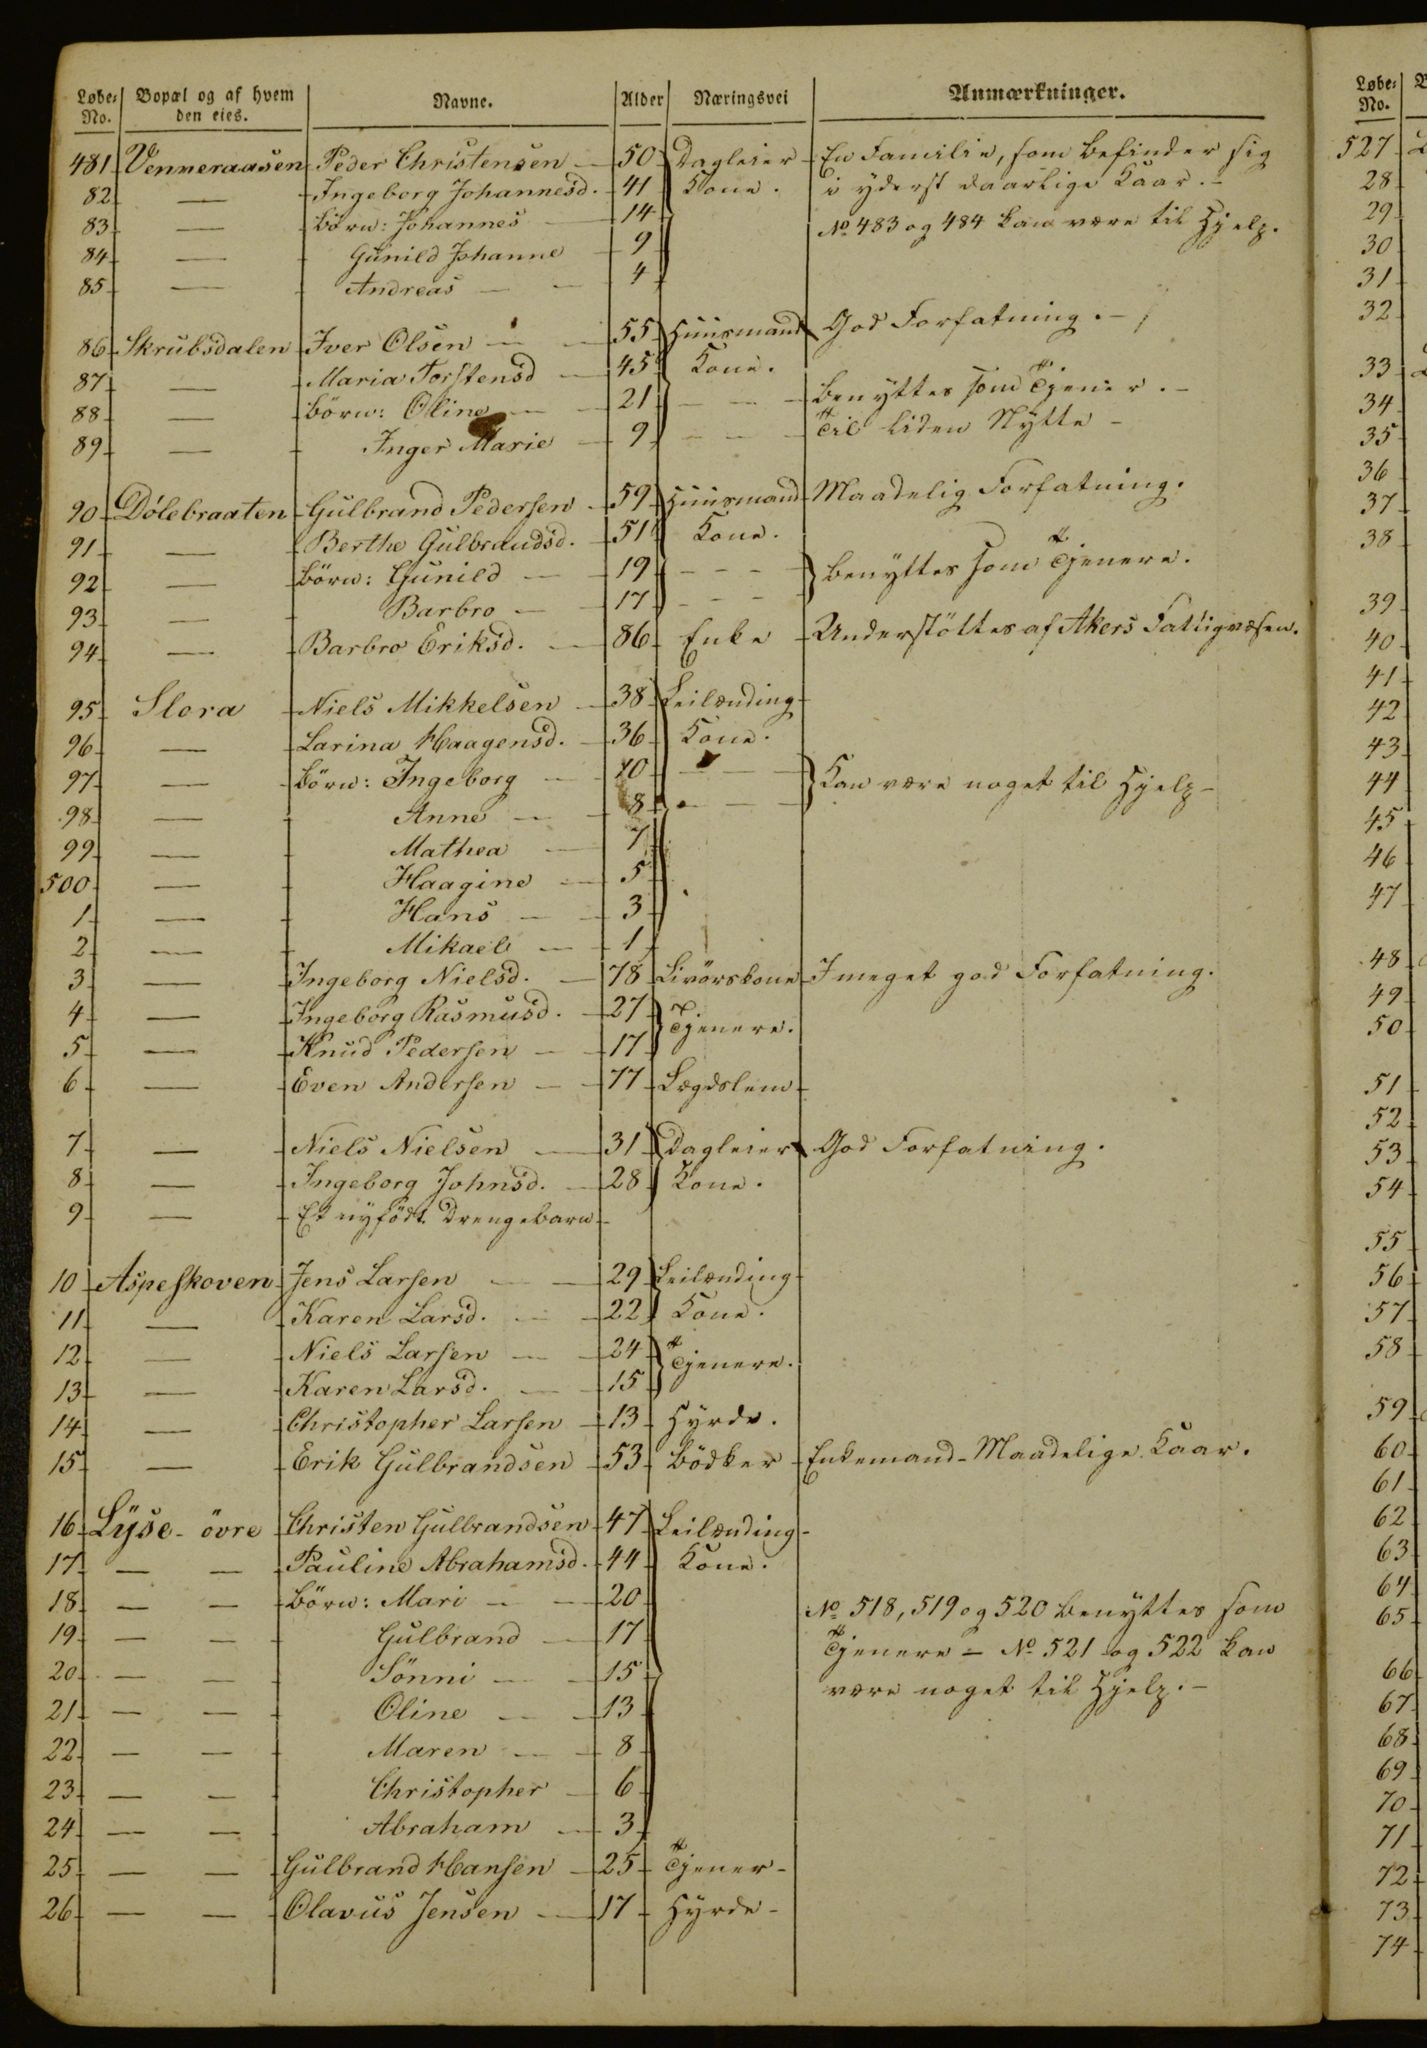 Løbe-No. Bopæl og af hvem den eies. Navne. Alder Næringsvei Anmærkninger.
481 Venneraasen Peder Christensen — 50 Dagleier En Familie, som befinder sig
82 — Ingeborg Johannesd. 41 Kone. i yderst daarlige Kaar. –
83 — Börn: Johannes — 14 No 483 og 484 kan være til Hjelp.
84 — Gunild Johanne 9
85 — Andreas — — 4
86 Skrubsdalen Iver Olsen — — 55 Huusmand God Forfatning. –
87 — Maria Torstensd — 45 Kone.
88 — Börn: Oline — — 21 – – – Benyttes som Tjener. –
89 — Inger Marie — 9 – – – Til liden Nytte –
90 Dölebraaten Gulbrand Pedersen 59 Huusmand Maadelig Forfatning.
91 — Berthe Gulbrandsd. 51 Kone.
92 — Börn: Gunild — — 19 – – – } Benyttes som Tjenere.
93 — Barbro — — 17 – – –
94 — Barbro Eriksd. — 86 Enke Understöttes af Akers Fattigvæsen.
95 Slora Niels Mikkelsen — 38 Leilænding
96 — Larina Haagensd. 36 Kone.
97 — Börn: Ingeborg — 10 – – – } Kan være noget til Hjelp –
98 — Anne — — 8 – – –
99 — Mathea — 7
500 — Haagine — 5
1 — Hans — — 3
2 — Mikael — 1
3 — Ingeborg Nielsd. — 78 Livörskone I meget god Forfatning.
4 — Ingeborg Rasmusd. 27 } Tjenere.
5 — Knud Pedersen — 17
6 — Even Andersen — 77 Lægdslem
7 — Niels Nielsen — 31 Dagleier God Forfatning.
8 — Ingeborg Johnsd. — 28 Kone.
9 — Et nyfödt Drengebarn
10 Aspeskoven Jens Larsen — — 29 Leilænding
11 — Karen Larsd. — — 22 Kone.
12 — Niels Larsen — — 24 } Tjenere.
13 — Karen Larsd. — 15
14 — Christopher Larsen — 13 Hyrde.
15 — Erik Gulbrandsen — 53 Bödker Enkemand – Maadelige Kaar.
16 Lyse – övre Christen Gulbrandsen 47 Leilænding
17 — — Pauline Abrahamsd. 44 Kone.
18 — — Börn: Mari — — 20 No 518, 519 og 520 benyttes som
19 — — Gulbrand — 17 Tjenere – No 521 og 522 kan
20 — — Sönni — — 15 være noget til Hjelp. –
21 — — Oline — — 13
22 — — Maren — — 8
23 — — Christopher — 6
24 — — Abraham — 3
25 — — Gulbrand Hansen — 25 Tjener –
26 — — Olavus Jensen — 17 Hyrde –
Løbe-No.
527
28
29
30
31
32
33
34
35
36
37
38
39
40
41
42
43
44
45
46
47
48
49
50
51
52
53
54
55
56
57
58
59
60
61
62
63
64
65
66
67
68
69
70
71
72
73
74